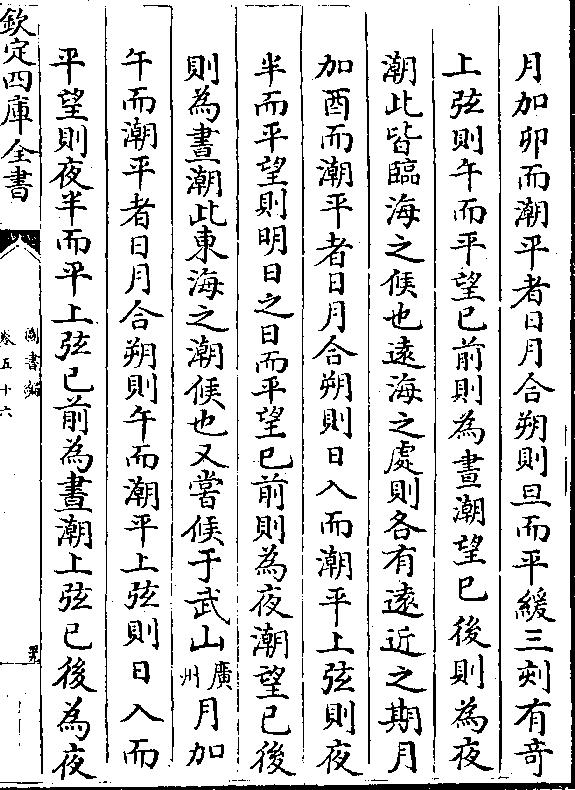 月加卯而潮平者日月合朔則旦而平緩三刻有奇
上弦則午而平望已前則為晝潮望已後則為夜
潮此皆臨海之候也逺海之處則各有逺近之期月
加酉而潮平者日月合朔則日入而潮平上弦則夜
半而平望則明日之日而平望已前則為夜潮望已後
則為晝潮此東海之潮候也又嘗候于武山廣州月加
午而潮平者日月合朔則午而潮平上弦則日入而
平望則夜半而平上弦已前為晝潮上弦已後為夜
欽定四庫全書
圖書編
卷五十六